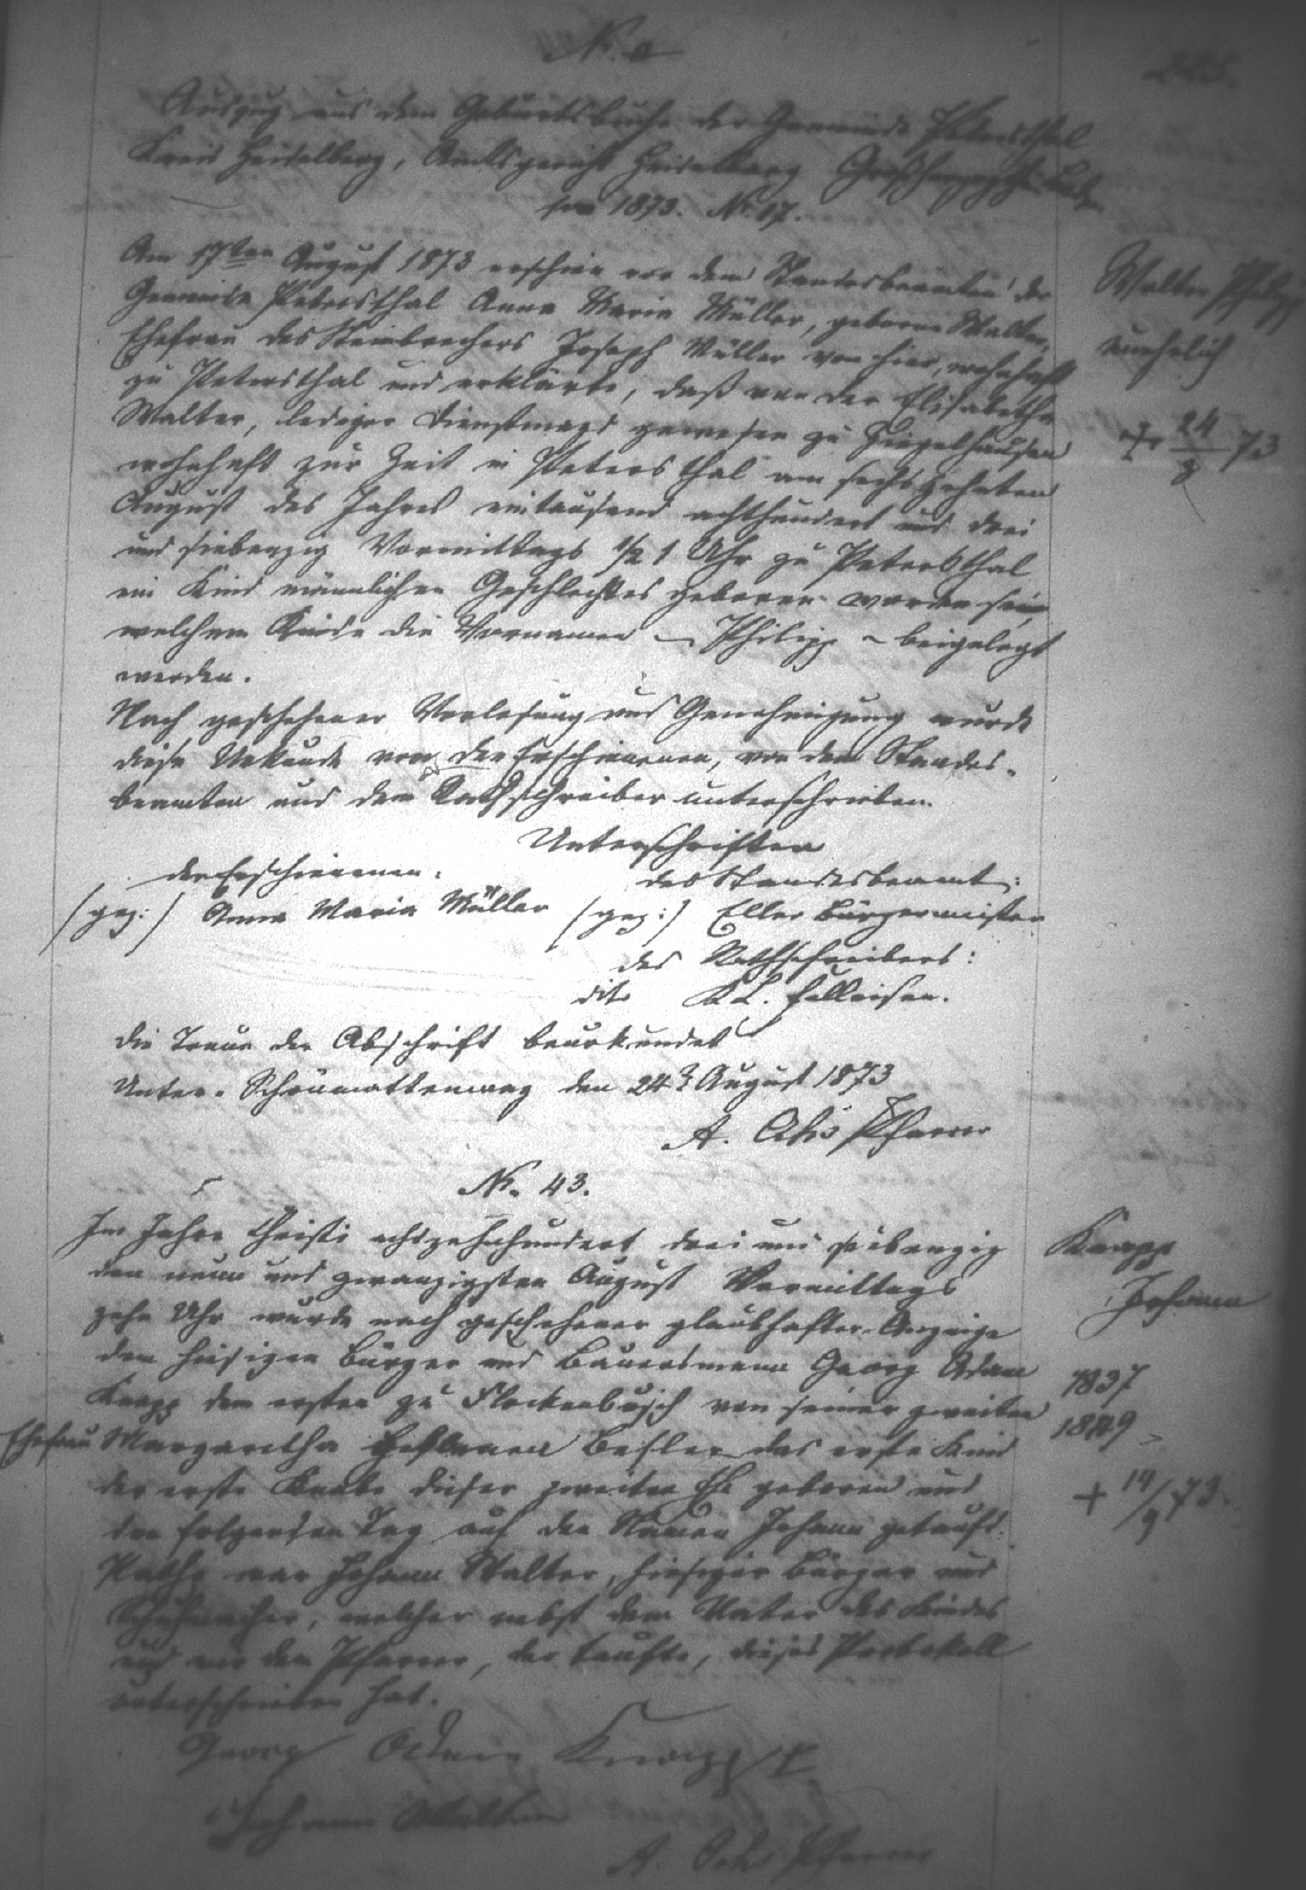 Nr. a
Auszug aus dem Geburtsbuche der Gemeinde Petersthal
Kreis Heidelberg, Amtsgericht Heidelberg Großherzogth. Baden
pro 1873. Nr. 17.
Am 17ten August 1873 erschien vor dem Standesbeamten der
Gemeinde Petersthal Anna Maria Müller, geborne Walter,
Ehefrau des Steinbrechers Joseph Müller von hier, wohnhaft
zu Petersthal und erklärte, daß von der Elisabetha
Walter, lediger Dienstmagd gewesen zu Ziegelhausen
wohnhaft zur Zeit in Petersthal am sechszehnten
August des Jahres eintausend achthundert und drei
und siebenzig Vormittags ½ 1 Uhr zu Petersthal
ein Kind männlichen Geschlechtes geboren worden sei,
welchem Kinde die Vornamen – Philipp – beigelegt
werden.
Nach geschehener Vorlesung und Genehmigung wurde
diese Urkunde von der Erschienenen, von dem Standes-
beamten und dem Rathschreiber unterschrieben.
Unterschriften
der Erschienenen: des Standesbeamt.:
(gez:) Anna Maria Müller (gez:) Eller Bürgermeister
des Rathschreibers:
dito K L. Falleisen.
Die Treue der Abschrift beurkundet
Unter-Schönmattenwag den 24t August 1873
A. Ochs Pfarrer
Walter Philipp
unehelich
+ 24/8 73
Nr. 43.
Im Jahre Christi achtzehnhundert drei und siebenzig
den neun und zwanzigsten August Vormittags
zehn Uhr wurde nach geschehener glaubhafter Anzeige
dem hiesigen Bürger und Bauersmann Georg Adam
Knapp dem ersten zu Flockenbusch von seiner zweiten
Ehefrau Margaretha Besler das erste Kind
der erste Knabe dieser zweiten Ehe geboren und
den folgenden Tag auf den Namen Johann getauft.
Pathe war Johann Walter, hiesiger Bürger und
Schuhmacher, welcher nebst dem Vater des Kindes
und mir dem Pfarrer, der taufte, dieses Protokoll
unterschrieben hat.
Georg Adam Knapp I.
Johann Walter
A. Ochs Pfarrer
Knapp
Johann
1837
1849
+ 14/9 73.